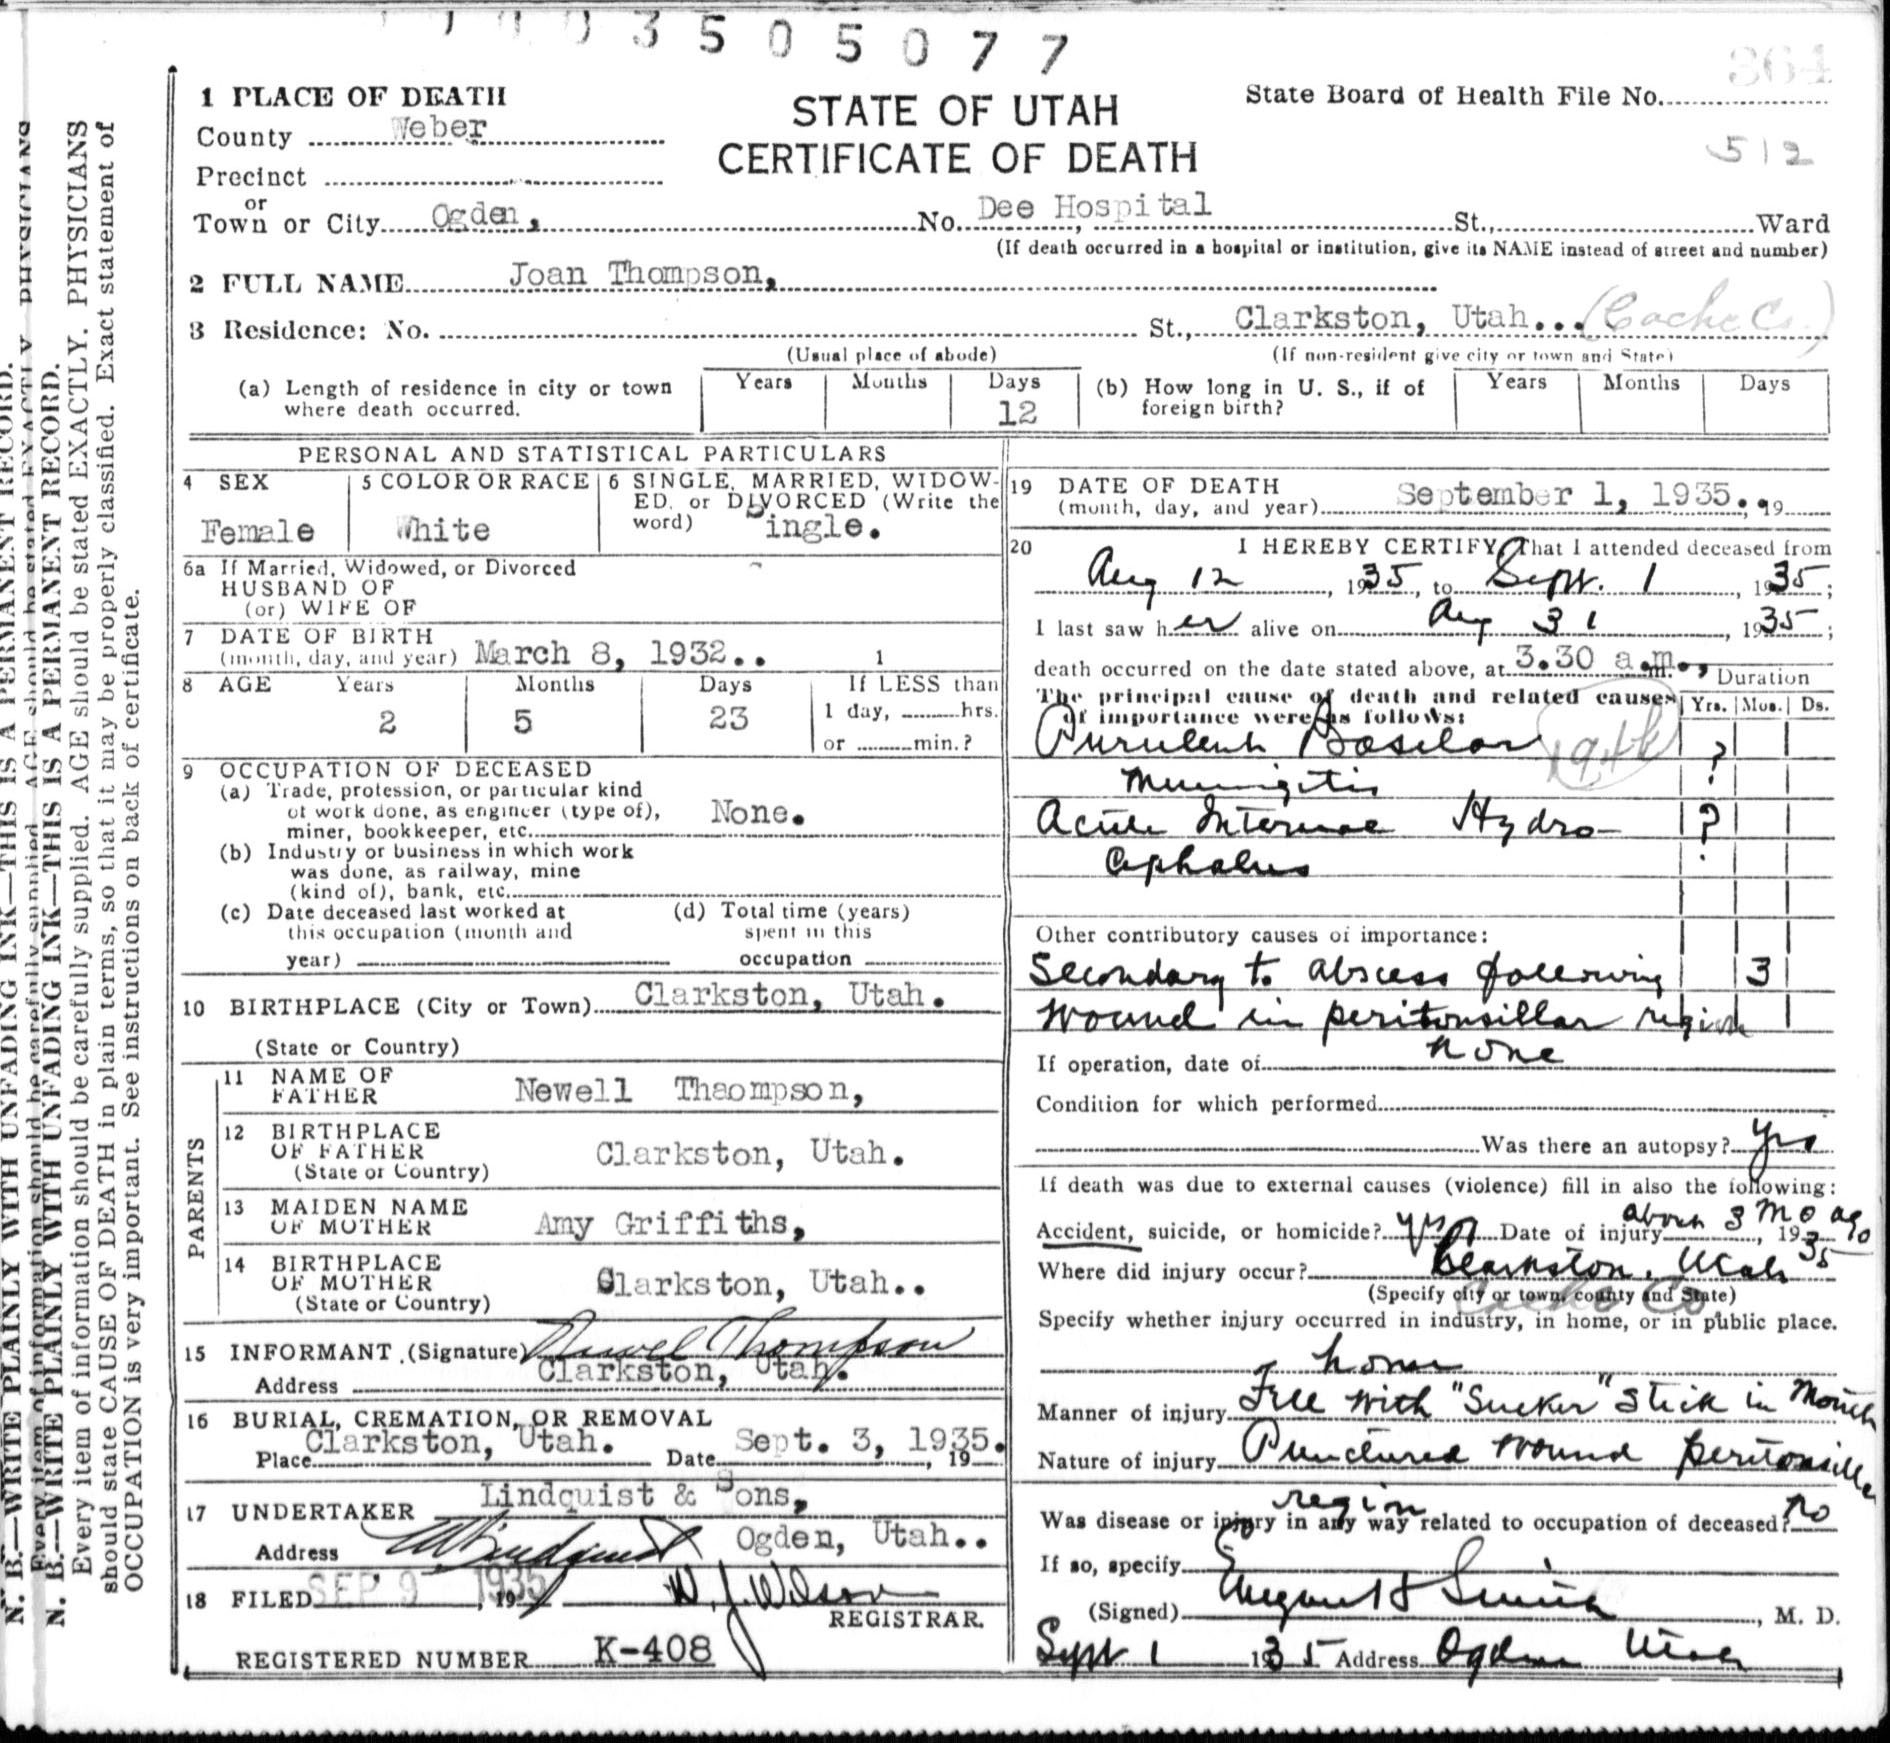 3505077
364
1 PLACE OF DEATH
STATE OF UTAH
CERTIFICATE OF DEATH
State Board of Health File No.
512
County Weber
Precinct
or
Town or City Ogden, No. Dee Hospital St., Ward
(If death occurred in a hospital or institution, give its NAME instead of street and number)
2 FULL NAME Joan Thompson,
3 Residence: No. St., Clarkston, Utah... (Cache Co.)
(Usual place of abode) (If non-resident give city or town and State)
(a) Length of residence in city or town where death occurred. Years Months Days 12
(b) How long in U. S., if of foreign birth? Years Months Days
PERSONAL AND STATISTICAL PARTICULARS
4 SEX Female
5 COLOR OR RACE White
6 SINGLE, MARRIED, WIDOWED, or DIVORCED (Write the word) Single.
6a If Married, Widowed, or Divorced
HUSBAND OF
(or) WIFE OF
7 DATE OF BIRTH
(month, day, and year) March 8, 1932.. 1
8 AGE Years Months Days If LESS than
2 5 23 1 day, hrs.
or min.?
9 OCCUPATION OF DECEASED
(a) Trade, profession, or particular kind
of work done, as engineer (type of),
miner, bookkeeper, etc. None.
(b) Industry or business in which work
was done, as railway, mine
(kind of), bank, etc.
(c) Date deceased last worked at
this occupation (month and
year)
(d) Total time (years)
spent in this
occupation
10 BIRTHPLACE (City or Town) Clarkston, Utah.
(State or Country)
PARENTS
11 NAME OF
FATHER Newell Thaompson,
12 BIRTHPLACE
OF FATHER
(State or Country) Clarkston, Utah.
13 MAIDEN NAME
OF MOTHER Amy Griffiths,
14 BIRTHPLACE
OF MOTHER
(State or Country) Clarkston, Utah..
15 INFORMANT (Signature) Newel Thompson
Address Clarkston, Utah.
16 BURIAL, CREMATION, OR REMOVAL
Place Clarkston, Utah. Date Sept. 3, 1935. , 19
17 UNDERTAKER Lindquist & Sons,
Address Ogden, Utah..
18 FILED SEP 9 1935 , 19 W. J. Wilson
REGISTRAR.
REGISTERED NUMBER K-408
19 DATE OF DEATH
(month, day, and year) September 1, 1935.., 19
20 I HEREBY CERTIFY, That I attended deceased from
Aug 12, 1935, to Sept. 1, 1935;
I last saw her alive on Aug 31, 1935;
death occurred on the date stated above, at 3.30 a.m.,
Duration
The principal cause of death and related causes
of importance were as follows: Yrs. Mos. Ds.
Purulent Basilar ?
Meningitis
Acute Internal Hydro- ?
cephalus
Other contributory causes of importance:
Secondary to abscess following 3
wound in peritonsillar region
If operation, date of none
Condition for which performed
Was there an autopsy? yes
If death was due to external causes (violence) fill in also the following:
Accident, suicide, or homicide? yes Date of injury about 3 Mo ago, 1935
Where did injury occur? Clarkston, Utah
(Specify city or town, county and State)
Cache Co
Specify whether injury occurred in industry, in home, or in public place.
home
Manner of injury Fell with "Sucker" Stick in Mouth
Nature of injury Punctured wound peritonsillar
region
Was disease or injury in any way related to occupation of deceased? no
If so, specify
(Signed) Smith, M. D.
Sept 1 1935 Address Ogden Utah
N. B.—WRITE PLAINLY WITH UNFADING INK—THIS IS A PERMANENT RECORD.
Every item of information should be carefully supplied. AGE should be stated EXACTLY. PHYSICIANS
N. B.—WRITE PLAINLY WITH UNFADING INK—THIS IS A PERMANENT RECORD.
Every item of information should be carefully supplied. AGE should be stated EXACTLY. PHYSICIANS
should state CAUSE OF DEATH in plain terms, so that it may be properly classified. Exact statement of
OCCUPATION is very important. See instructions on back of certificate.